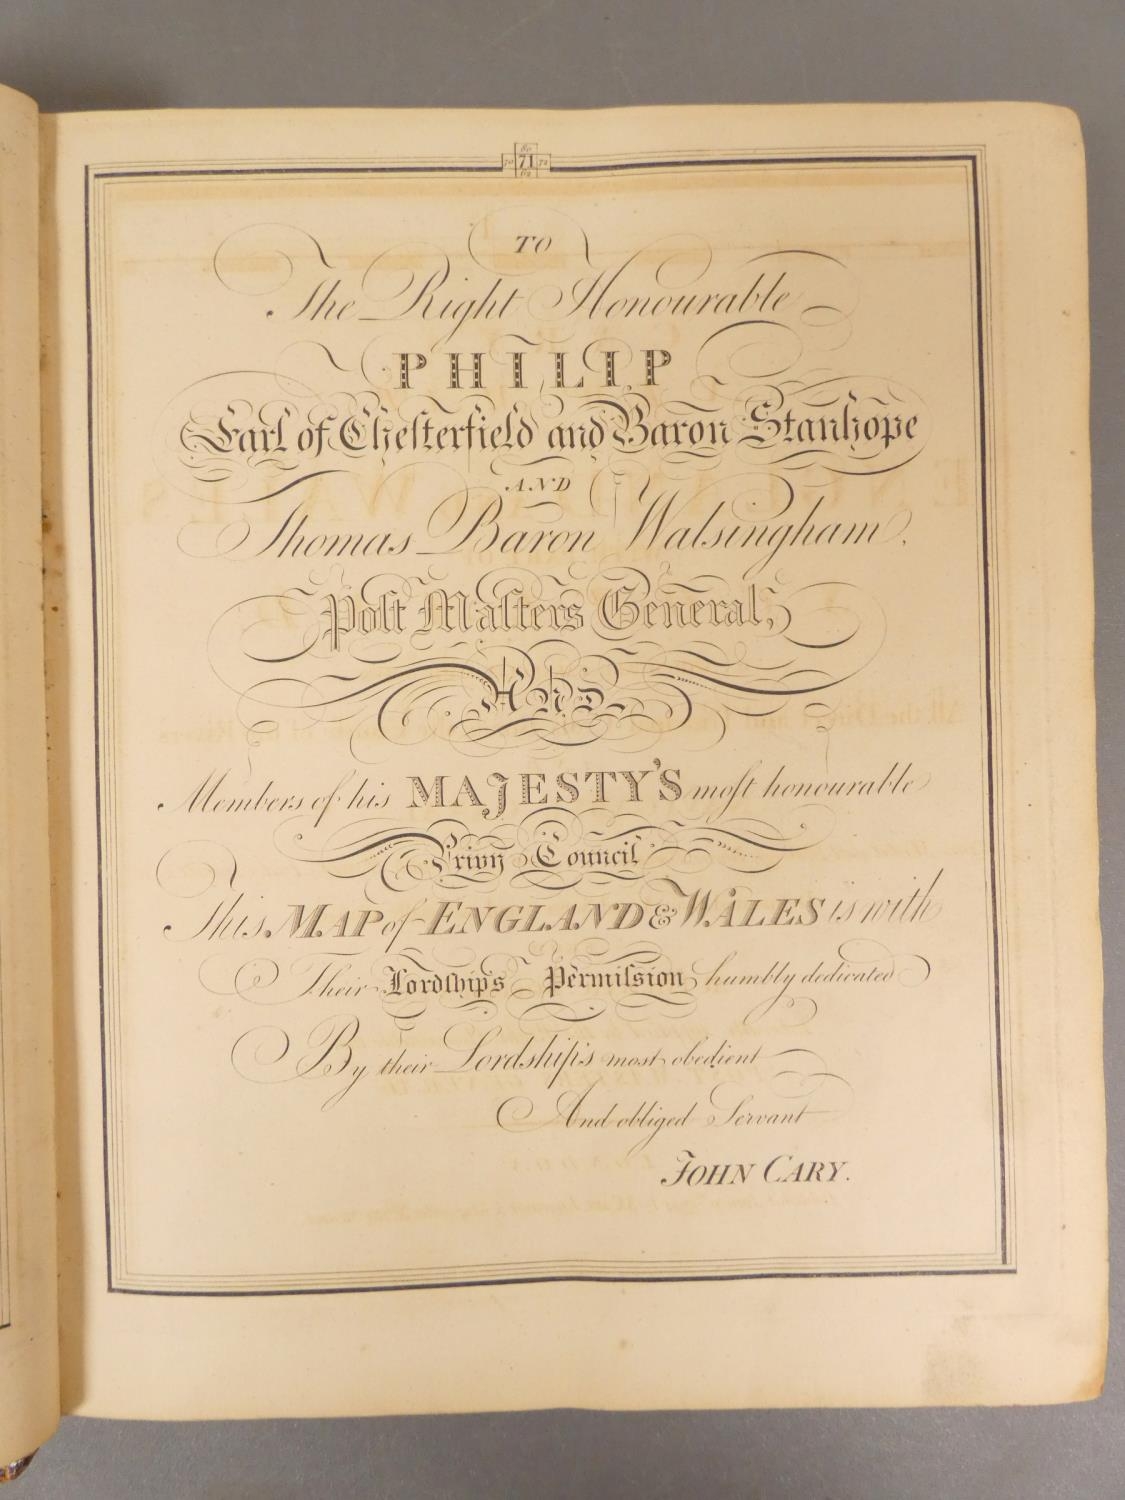 60
70 71 72
62
TO
The Right Honourable
PHILIP
Earl of Cheſterfield and Baron Stanhope
AND
Thomas Baron Walsingham.
Poſt Maſters General,
AND
Members of his MAJESTY'S moſt honourable
Privy Council
This MAP of ENGLAND & WALES is with
Their Lordſhip's Permiſsion humbly dedicated
By their Lordship's most obedient
And obliged Servant
JOHN CARY.